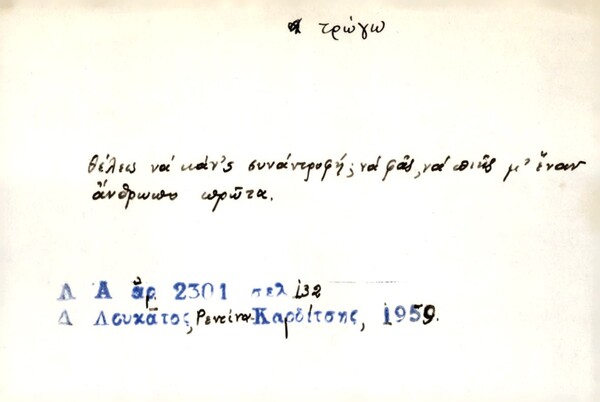 τρώγω
θέλεις νά κάν'ς συνάντροφή; νά φᾶς, νά πιῇς μ' ἕναν
ἄνθρωπο πρῶτα.
Λ Α ἀρ. 2301 σελ 132
Δ Λουκᾶτος, Ρεντίνα Καρδίτσης, 1959.